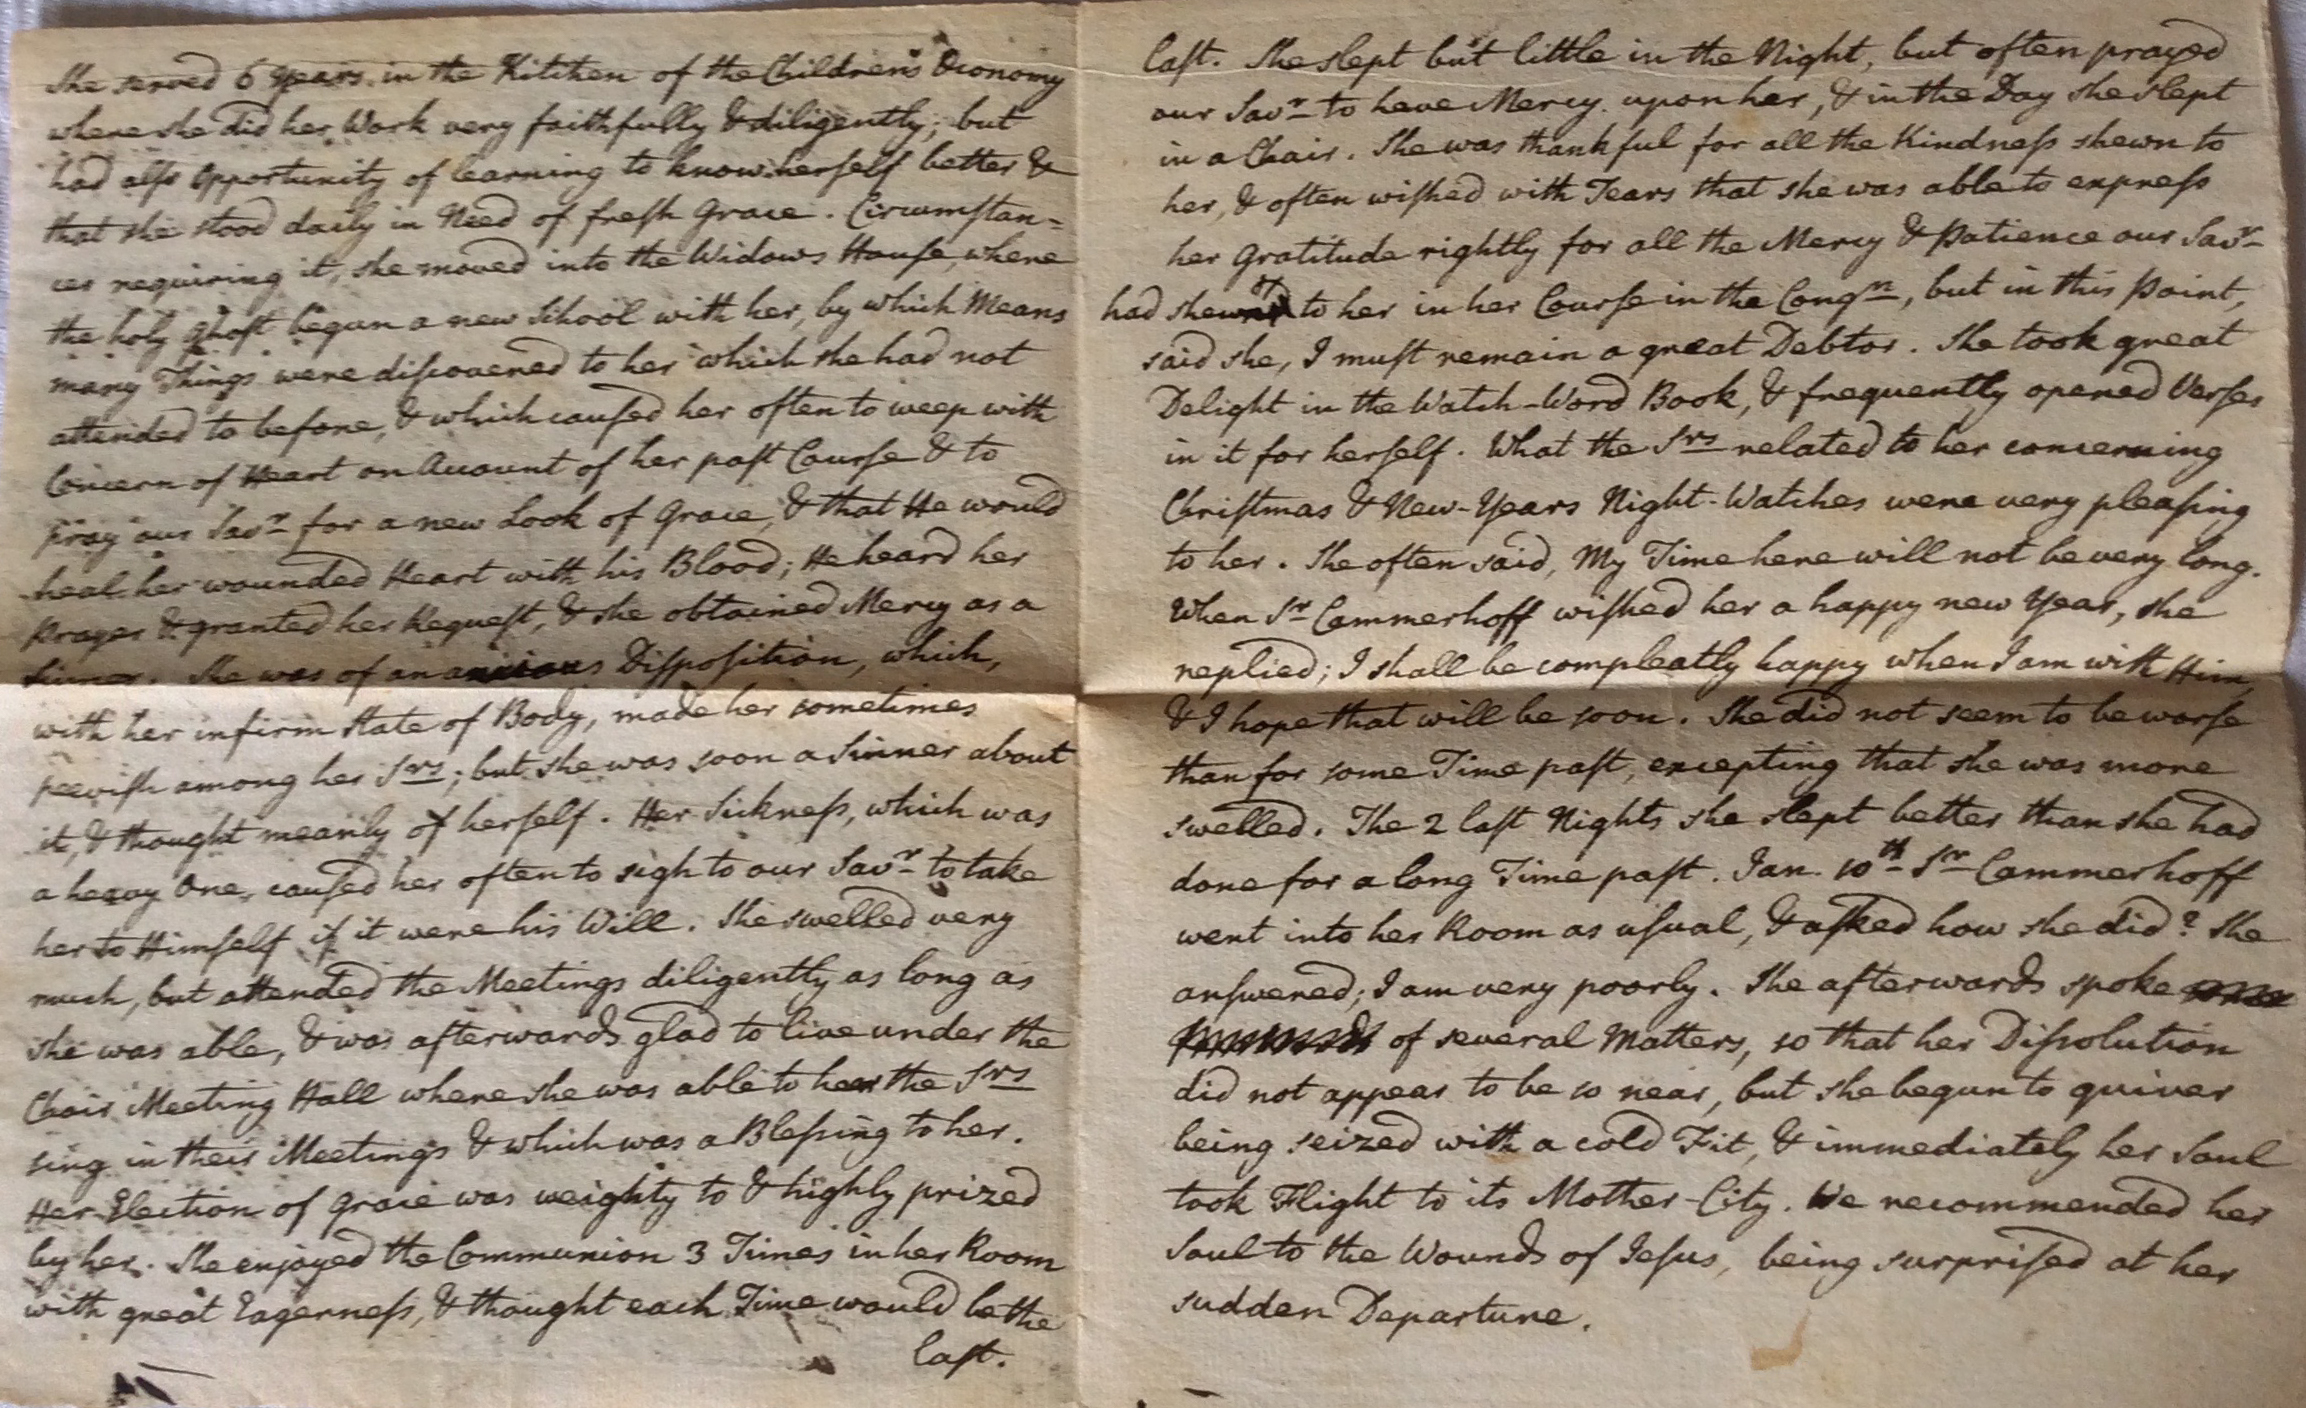 She served 6 Years in the Kitchen of the Children's Œconomy
where she did her Work very faithfully & diligently; but
had also Opportunity of learning to know herself better &
that she stood daily in Need of fresh Grace. Circumstan=
ces requiring it, she moved into the Widows House, where
the holy Ghost begun a new School with her, by which Means
many Things were discovered to her which she had not
attended to before, & which caused her often to weep with
Concern of Heart on Account of her past Course & to
pray our Savr for a new Look of Grace, & that He would
heal her wounded Heart with his Blood; He heard her
Prayer & granted her Request, & she obtained Mercy as a
Sinner. She was of an anxious Disposition, which,
with her infirm State of Body, made her sometimes
peevish among her Srs; but she was soon a Sinner about
it, & thought meanly of herself. Her Sickness, which was
a heavy One, caused her often to sigh to our Savr to take
her to Himself if it were his Will. She swelled very
much, but attended the Meetings diligently as long as
she was able, & was afterwards glad to live under the
Choir Meeting Hall where she was able to hear the Srs
sing in their Meetings & which was a Blessing to her.
Her Election of Grace was weighty to & highly prized
by her. She enjoyed the Communion 3 Times in her Room
with great Eagerness, & thought each Time would be the
last.
last. She slept but little in the Night, but often prayed
our Savr to have Mercy upon her, & in the Day she slept
in a Chair. She was thankful for all the Kindness shewn to
her, & often wished with Tears that she was able to express
her Gratitude rightly for all the Mercy & Patience our Savr
had shewn to her in her Course in the Congn, but in this Point,
said she, I must remain a great Debtor. She took great
Delight in the Watch-Word Book, & frequently opened Verses
in it for herself. What the Srs related to her concerning
Christmas & New-Years Night-Watches were very pleasing
to her. She often said, My Time here will not be very long.
When Sr Cammerhoff wished her a happy new Year, she
replied; I shall be compleatly happy when I am with Him,
& I hope that will be soon. She did not seem to be worse
than for some Time past, excepting that she was more
swelled. The 2 last Nights she slept better than she had
done for a long Time past. Jan. 10th Sr Cammerhoff
went into her Room as usual, & asked how she did? She
answered; I am very poorly. She afterwards spoke
of several Matters, so that her Dissolution
did not appear to be so near, but she begun to quiver
being seized with a cold Fit, & immediately her Soul
took Flight to its Mother-City. We recommended her
Soul to the Wounds of Jesus, being surprised at her
sudden Departure.